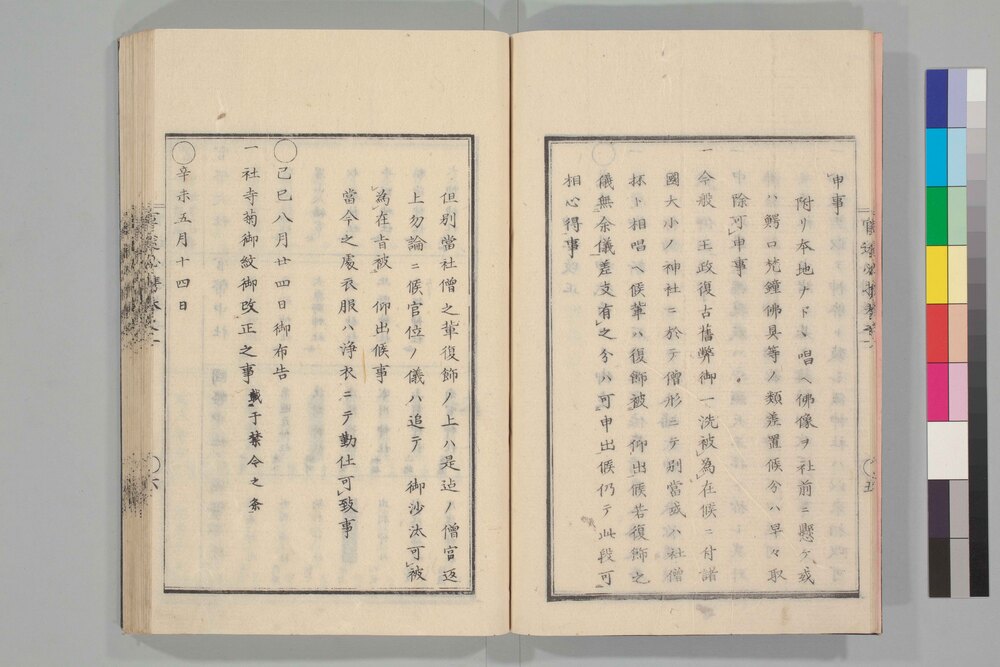 申事
附リ本地ナドヽ唱ヘ佛像ヲ社前ニ懸ケ或
ハ鰐口梵鐘佛具等ノ類差置候分ハ早々取
除可申事
一今般 王政復古舊弊御一洗被為在候ニ付諸
國大小ノ神社ニ於テ僧形ニテ別當或ハ社僧
抔ト相唱ヘ候輩ハ復飾被 仰出候若復飾之
儀無余儀差支有之分ハ可申出候仍テ此段可
相心得事
但別當社僧之輩復飾ノ上ハ是迠ノ僧官返
上勿論ニ候官位ノ儀ハ追テ 御沙汰可被
為在旨被 仰出候事
當今之處衣服ハ浄衣ニテ勤仕可致事
〇己巳八月廿四日御布告
一社寺菊御紋御改正之事 載于禁令之条
〇辛未五月十四日
五
六